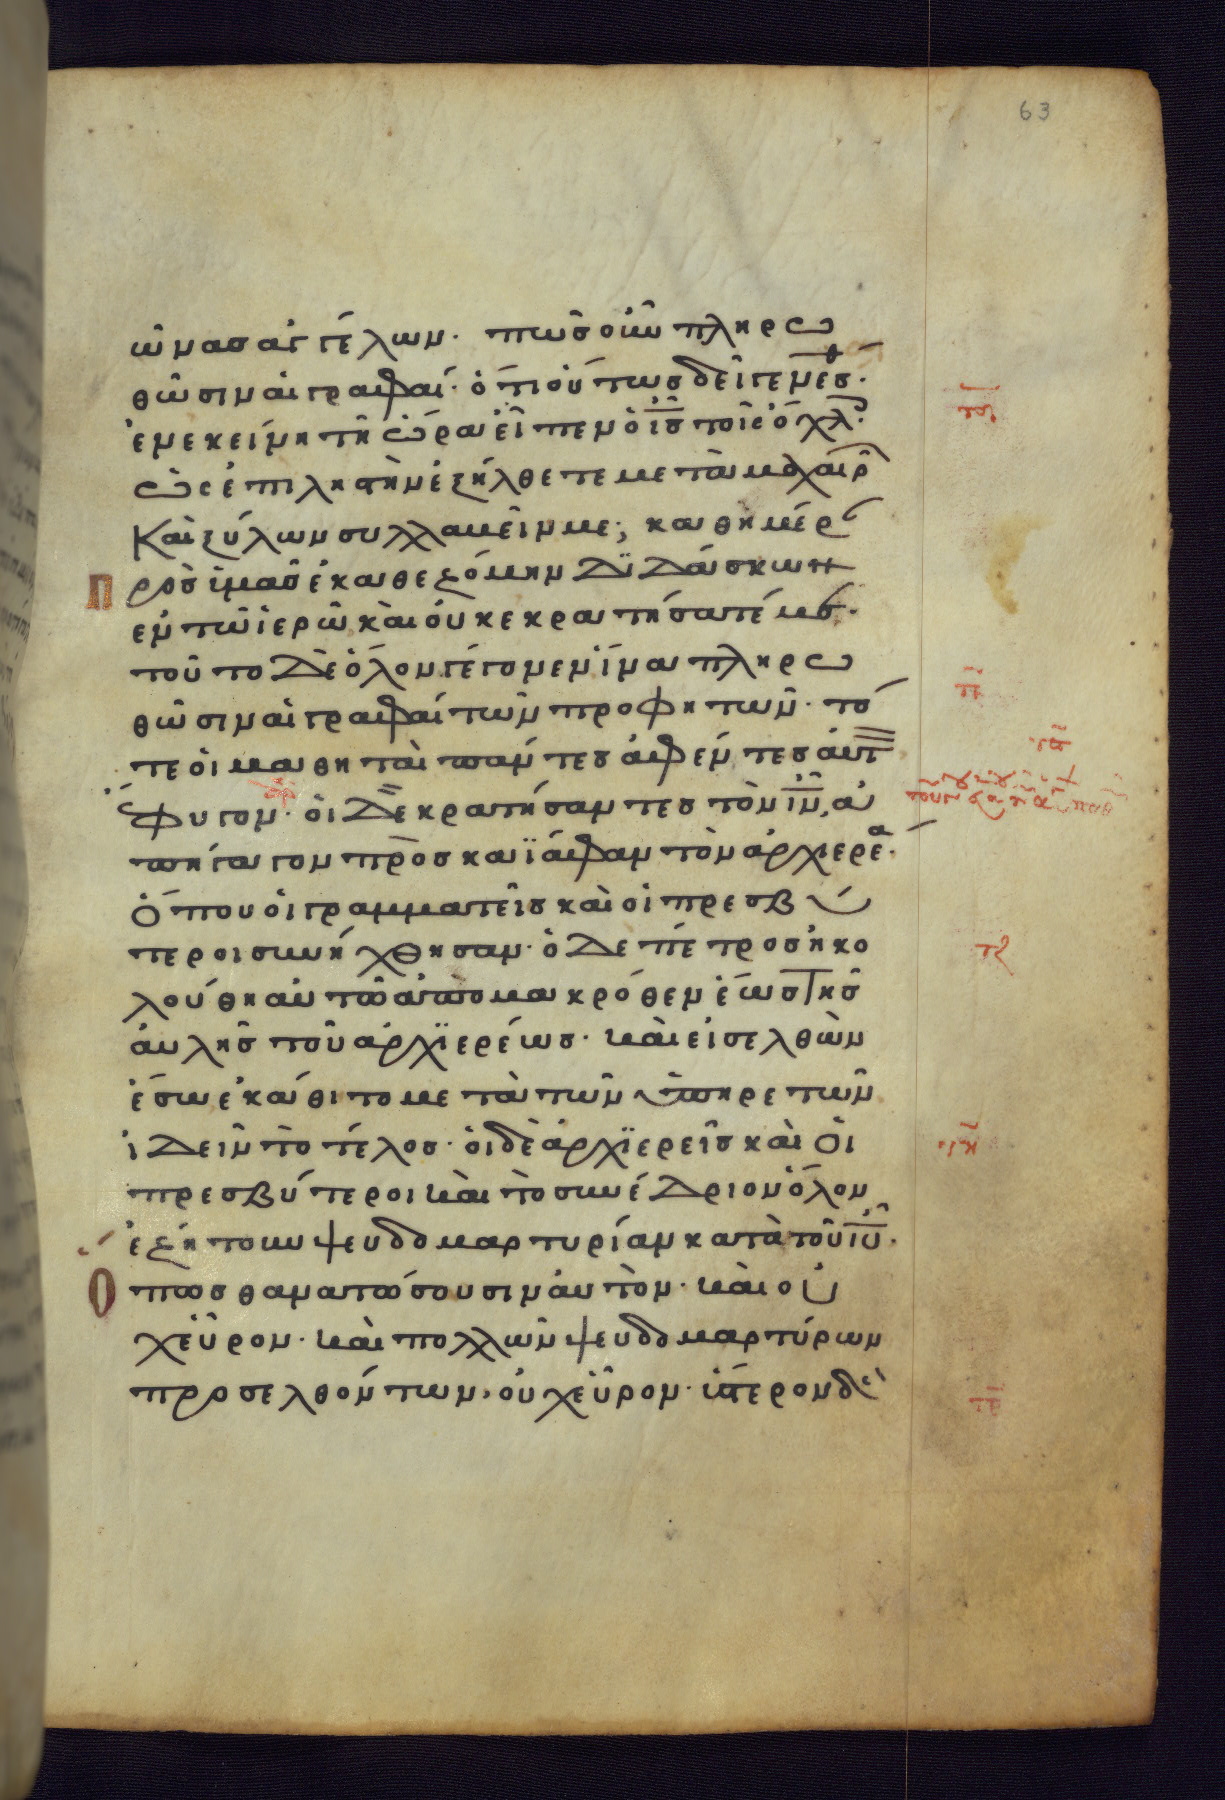 63
ὤνασ ἀγγέλων· πῶσ οὖν πληρω
θῶσιν αἱ γραφαί· ὅτι οὕτωσ δεῖ γενέσθ·
ἐν ἐκείνη τῆ ὥρα εἶπεν ὁ ι̅σ̅ τοῖσ ὄχλ·
ὡσ ἐπι ληστὴν ἐξήλθετε μετὰ μαχαιρ
Καὶ ξύλων συλλαβεῖν με; καθημέρ
Πρὸσ ὑμᾶσ ἐκαθεζόμην διδάσκων
ἐν τῶ ἱερῶ καὶ οὐκ ἐκρατήσατέ με·
τοῦτο δὲ ὅλον γέγονεν ἵνα πληρω
θῶσιν αἱ γραφαί τῶν προφητῶν· τό
τε οἱ μαθηταὶ πάντεσ ἀφέντεσ αὐτ
ἔφυγον· οἱ δὲ κρατήσαντεσ τὸν ι̅ν̅, ἀ
πήγαγον πρὸσ καϊάφαν τὸν ἀρχιερέα·
Ὅπου οἱ γραμματεῖσ καὶ οἱ πρεσβύ
τεροι συνήχθησαν· ὁ δὲ πέτροσ ἠκο
λούθη αὐτῶ ἀπὸ μακρόθεν ἕωσ τῆσ
αὐλῆσ τοῦ ἀρχϊερέωσ· καὶ εἰσελθὼν
ἔσω ἐκάθιτο μετὰ τῶν ὑπηρετῶν
ἰδεῖν τὸ τέλοσ· οἱ δὲ ἀρχϊερεῖσ καὶ οἱ
πρεσβύτεροι καὶ τὸ συνέδριον ὅλον
ἐζήτουν ψευδομαρτυρίαν κατὰ τοῦ ι̅υ̅·
Ὅπωσ θανατώσουσιν αὐτὸν· καὶ οὐ
χεὗρον· καὶ πολλῶν ψευδομαρτύρων
προσελθόντων, οὐχεὗρον· ὕστερον δὲ